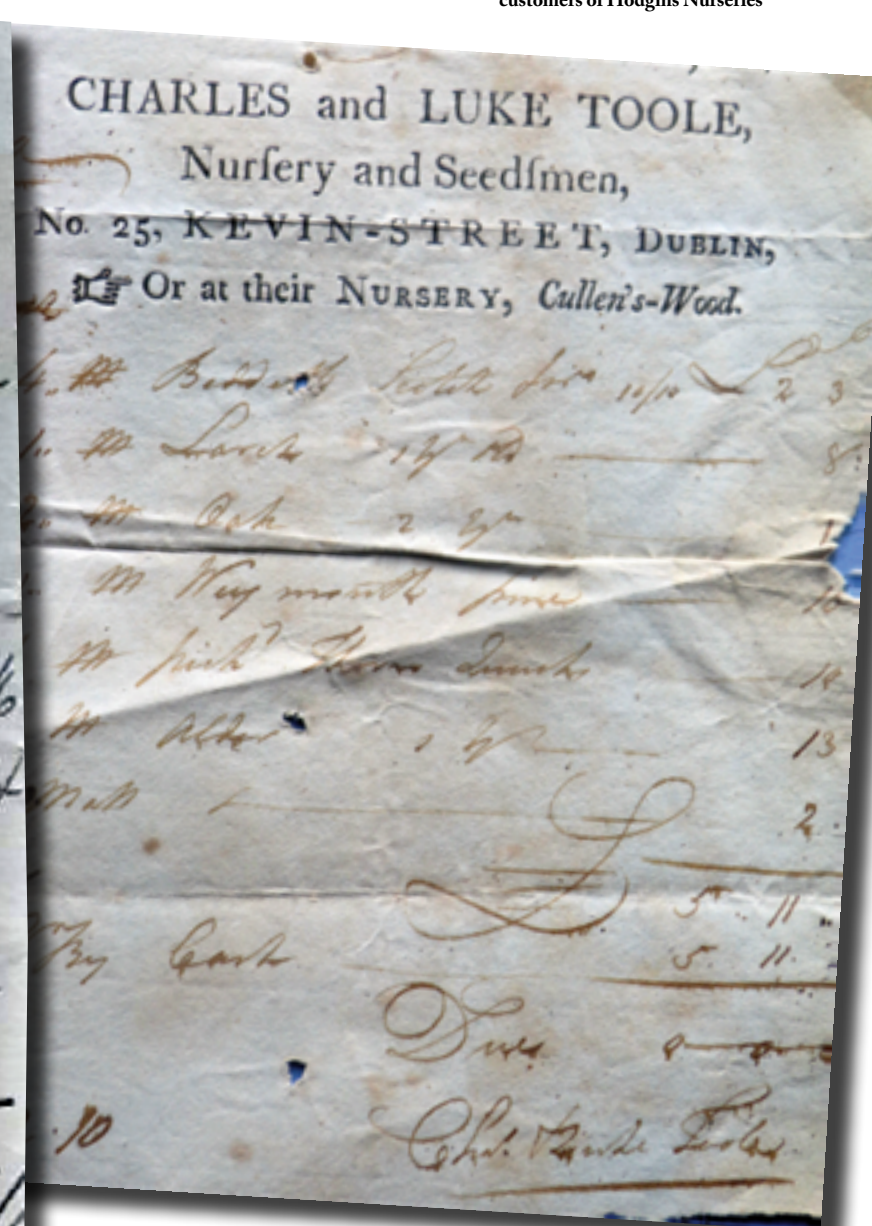 customers of Hodgins Nurseries
CHARLES and LUKE TOOLE,
Nurſery and Seedſmen,
No. 25, KEVIN-STREET, DUBLIN,
Or at their NURSERY, Cullen's-Wood.
M Scotch firs 10/10 2 3
M Larch 1 yr 8
M Oak 2 yr
M Weymouth pines 10
M Thorn Quicks 14
M Alder 1 yr 13
Matt 2
5 .. 11 ..
By Cash 5. 11.
Due 0 0 0
10
Chs. & Luke Toole